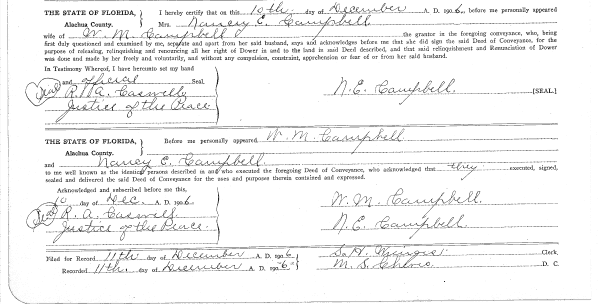 THE STATE OF FLORIDA, I hereby certify that on this 10th. day of December A. D. 1906., before me personally appeared
Alachua County. Mrs. Nancy E. Campbell
wife of W. M. Campbell the grantor in the foregoing conveyance, who, being
first duly questioned and examined by me, separate and apart from her said husband, says and acknowledges before me that she did sign the said Deed of Conveyance, for the
purpose of releasing, relinquishing and renouncing all her right of Dower in and to the land in said Deed described, and that said relinquishment and Renunciation of Dower
was done and made by her freely and voluntarily, and without any compulsion, constraint, apprehension or fear of or from her said husband.
In Testimony Whereof, I have hereunto set my hand
and official Seal.
Seal R. A. N. E. Campbell. [SEAL.]
Justice of the Peace
THE STATE OF FLORIDA, Before me personally appeared W. M. Campbell
Alachua County.
and Nancy E. Campbell.
to me well known as the identical persons described in and who executed the foregoing Deed of Conveyance, who acknowledged that they executed, signed,
sealed and delivered the said Deed of Conveyance for the uses and purposes therein contained and expressed.
Acknowledged and subscribed before me this,
10 day of Dec. A. D. 1906 W. M. Campbell.
Seal R. A.
Justice of the Peace. N. E. Campbell
Filed for Record 11th day of December A. D. 1906 S. H. Clerk.
Recorded 11th. day of December A. D. 1906 M. S. D. C.